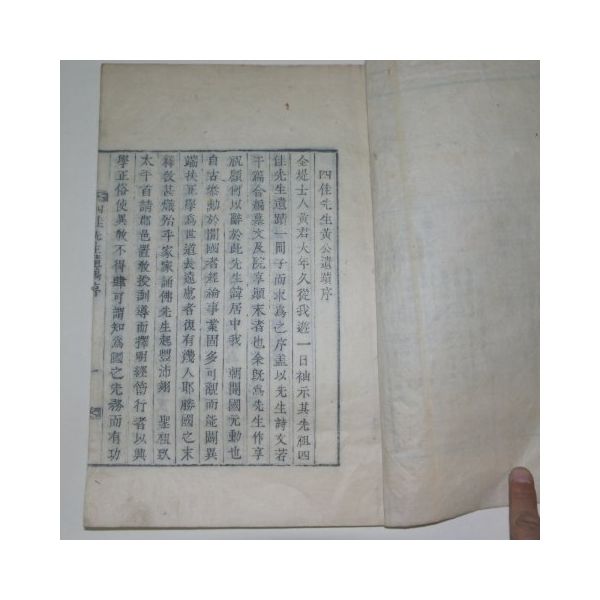 四佳先生黃公遺蹟序
金堤士人黃君大年久從我遊一日袖示其先祖四
佳先生遺蹟一冊子而求爲之序盖以先生詩文若
干篇合碣墓文及院享顚末者也余旣爲先生作享
祝顧何以辭於此先生諱居中我 朝開國元勳也
自古樂勳於開國者經論事業固多可觀而能闢異
端扶正學爲世道長遠慮者復有幾人耶勝國之末
釋敎甚熾殆乎家家誦佛先生起豐沛翊 聖祖致
太平首請郡邑置敎授訓導而擇明經篤行者以興
學正俗使異敎不得肆可謂知爲國之先務而有功
四佳先生遺蹟序 一